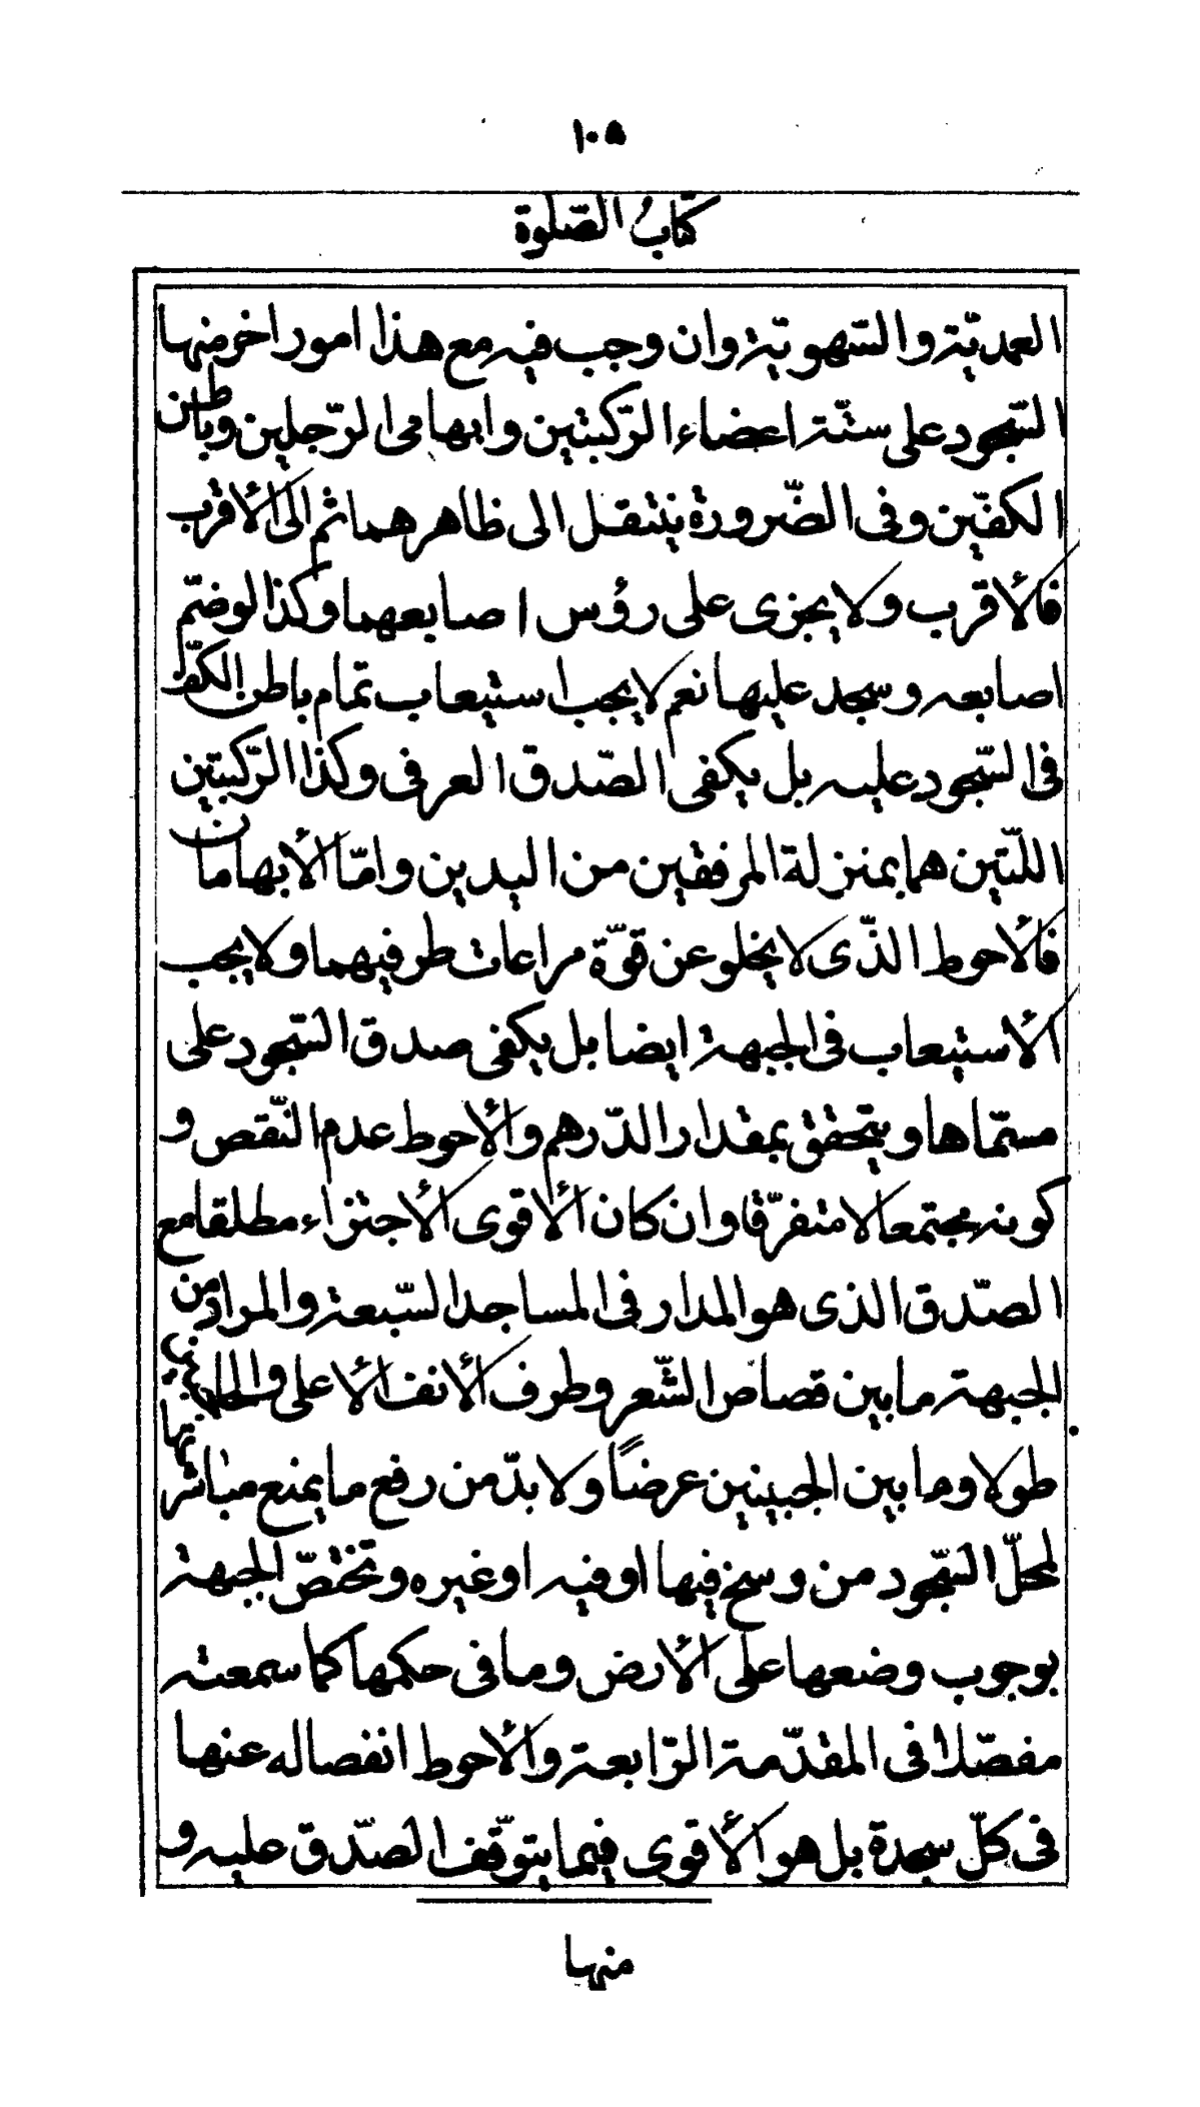 ١٠٥
كتابُ الصّلوة
العمديّة والسّهويّة وان وجب فيه مع هذا امور اخر منها
السّجود على ستّة اعضاء الرّكبتين وابهامى الرّجلين وباطن
الكفّين وفى الضّرورة ينتقل الى ظاهرهما ثم الى الأقرب
فالأقرب ولا يجزى على رؤس اصابعهما وكذا لو ضمّ
اصابعه وسجد عليها نعم لا يجب استيعاب تمام باطن الكفّ
فى السّجود عليه بل يكفى الصّدق العرفى وكذا الرّكبتين
اللّتين هما بمنزلة المرفقين من اليدين وامّا الأبهامان
فالأحوط الذّى لا يخلو عن قوّة مراعات طرفيهما ولا يجب
الأستيعاب فى الجبهة ايضا بل يكفى صدق السّجود على
مسمّاها ويتحقق بمقدار الدّرهم والأحوط عدم النّقص و
كونه مجتمعا لا متفرّقا وان كان الأقوى الأجتزاء مطلقا مع
الصّدق الذى هو المدار فى المساجد السّبعة والمراد من
الجبهة ما بين قصاص الشّعر وطرف الأنف الأعلى والحاجبين
طولا وما بين الجبينين عرضاً ولا بدّ من رفع ما يمنع مباشرتها
لمحلّ السّجود من وسخ فيها او فيه او غيره وتختصّ الجبهة
بوجوب وضعها على الأرض وما فى حكمها كما سمعته
مفصّلا فى المقدّمة الرّابعة والأحوط انفصاله عنها
فى كلّ سجدة بل هو الأقوى فيما يتوقّف الصّدق عليه و
منها